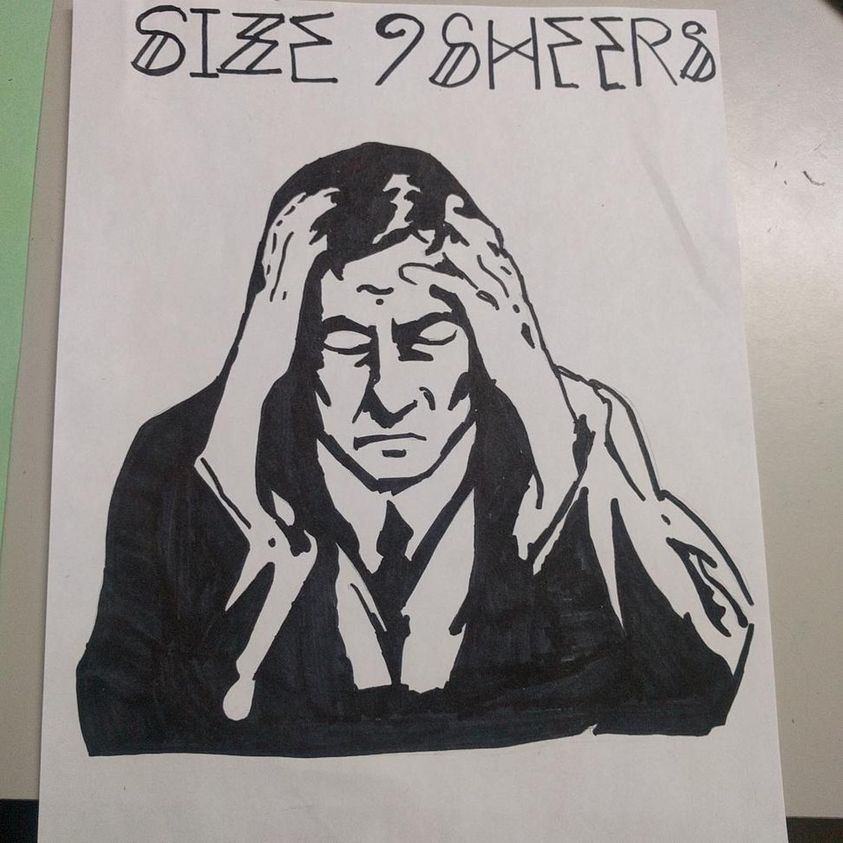 SIZE 9 SHEERS